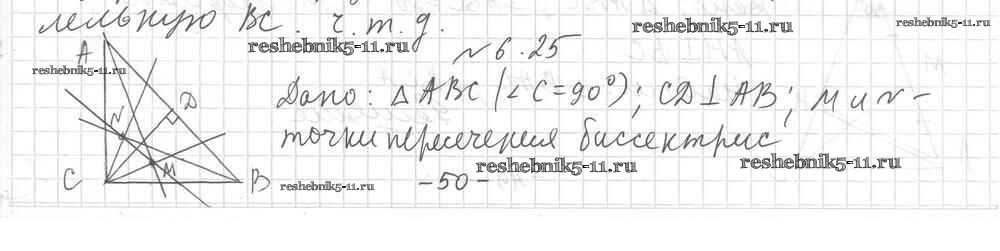 лельную BC. ч.т.д.
reshebnik5-11.ru
reshebnik5-11.ru
reshebnik5-11.ru
№ 6.25
A
reshebnik5-11.ru
Дано: △ABC (∠C=90°); CD⊥AB; M и N -
D
N
точки пересечения биссектрис
M
C
B
reshebnik5-11.ru
reshebnik5-11.ru
reshebnik5-11.ru
-50-